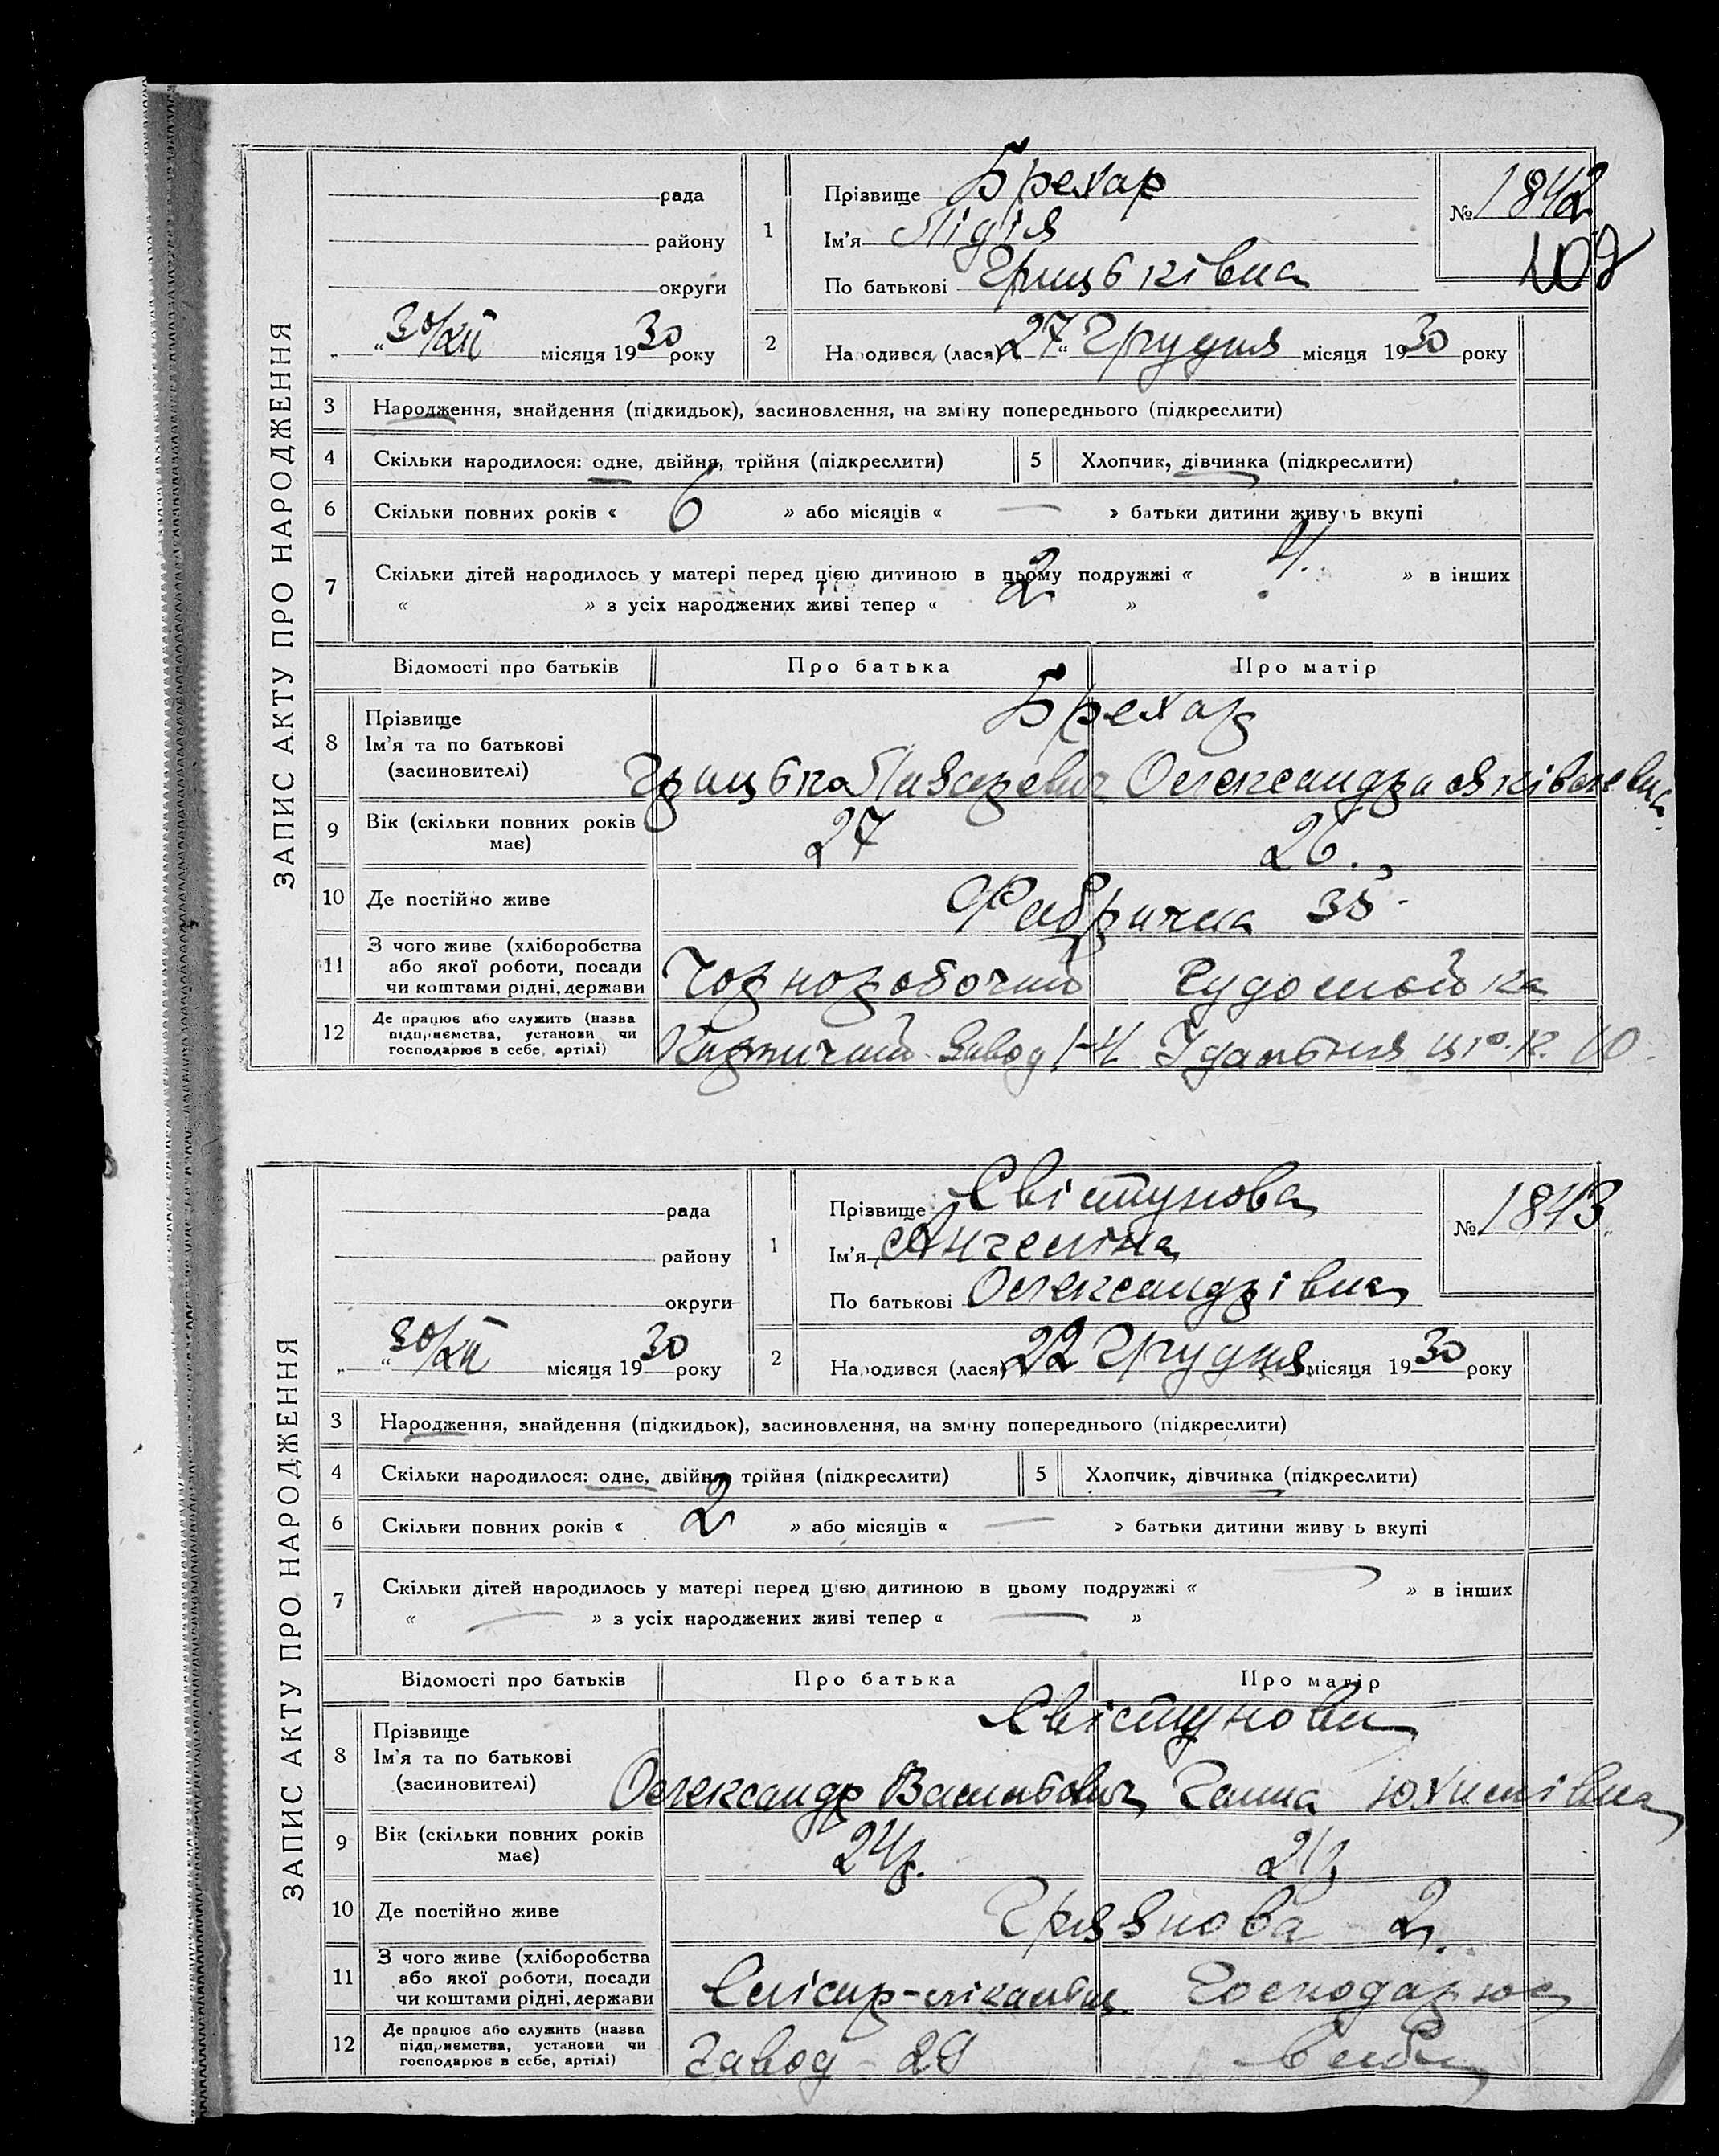 ЗАПИС АКТУ ПРО НАРОДЖЕННЯ
рада
району
округи
„ “ 30/XII місяця 1930 року
1
Прізвище Брехар
Ім'я Лідія
По батькові Грицьківна
№ 1842
109
2
Народився (лася) 27 “ Грудня місяця 1930 року
3 Народження, знайдення (підкидьок), засиновлення, на зміну попереднього (підкреслити)
4 Скільки народилося: одне, двійня, трійня (підкреслити)
5 Хлопчик, дівчинка (підкреслити)
6 Скільки повних років « 6 » або місяців « — » батьки дитини живуть вкупі
7 Скільки дітей народилось у матері перед цією дитиною в цьому подружжі « » в інших
« » з усіх народжених живі тепер « 2 »
Відомості про батьків Про батька Про матір
8 Прізвище
Ім'я та по батькові
(засиновителі)
Брехар
Грицько Олександра Яківлевна
9 Вік (скільки повних років має)
27 26.
10 Де постійно живе Фабрична 35
11 З чого живе (хліборобства
або якої роботи, посади
чи коштами рідні, держави
Чорноробочий Судомойка
12 Де працює або служить (назва
підприємства, установи чи
господарює в себе, артілі)
Кирпичний завод Їдальня
ЗАПИС АКТУ ПРО НАРОДЖЕННЯ
рада
району
округи
„ “ 30/XII місяця 1930 року
1
Прізвище Свістунова
Ім'я Ангеліна
По батькові Олександрівна
№ 1843
2
Народився (лася) 22 Грудня місяця 1930 року
3 Народження, знайдення (підкидьок), засиновлення, на зміну попереднього (підкреслити)
4 Скільки народилося: одне, двійня, трійня (підкреслити)
5 Хлопчик, дівчинка (підкреслити)
6 Скільки повних років « 2 » або місяців « — » батьки дитини живуть вкупі
7 Скільки дітей народилось у матері перед цією дитиною в цьому подружжі « — » в інших
« — » з усіх народжених живі тепер « — »
Відомості про батьків Про батька Про матір
8 Прізвище
Ім'я та по батькові
(засиновителі)
Свістунови
Олександр Васильович Ганна Юхимівна
9 Вік (скільки повних років має)
24р. 21р
10 Де постійно живе Грязнова 2
11 З чого живе (хліборобства
або якої роботи, посади
чи коштами рідні, держави
Слісар- Господарює
12 Де працює або служить (назва
підприємства, установи чи
господарює в себе, артілі)
Завод - 29 в себе